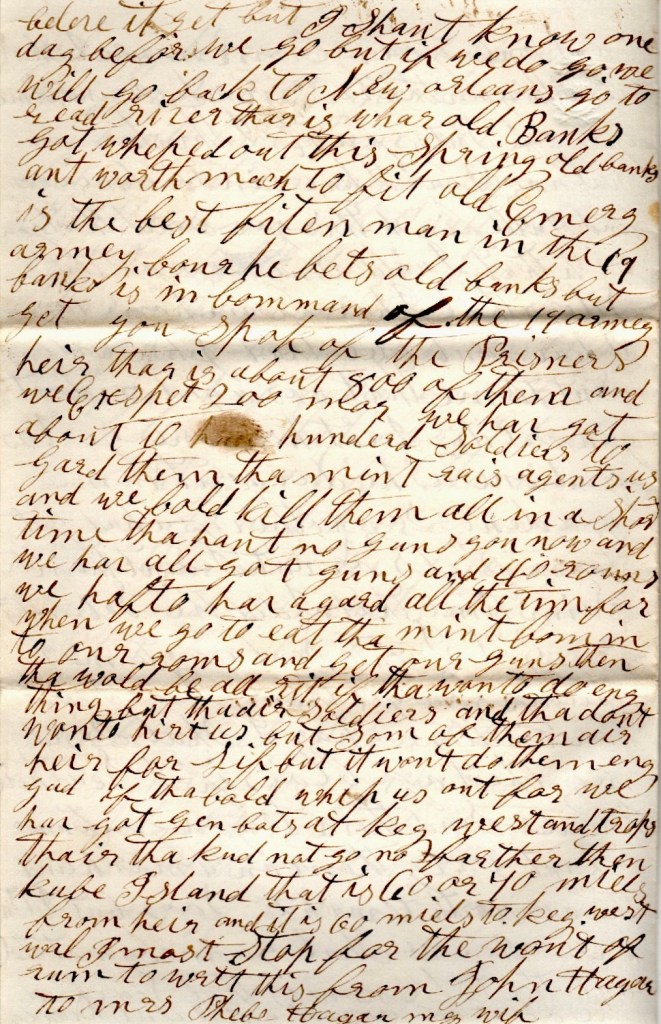 bedore it get but I shant know one
day befor we go but if we do go we
will go back to New orleans go to
read river thar is whar old Banks
got wheped out this Spring old banks
ant worth mach to fit old Emerg
is the best fiten man in the 19
armey bour he bets old banks but
banks is in bommand of the 19 armey
get you Spok of the Prisners
heir thar is about 800 of them and
we Exspet 200 mor we har got
about 10 hunderd Soldiers to
gard them tha mint rais agents us
and we bold kill them all in a Short
time tha hant no guns you now and
we har all got guns and 40 rouns
we hafto har a gard all the tim for
when we go to eat tha mint bom in
to our roms and get our guns then
tha wold be all rit if tha won to do eny
thing but tha air Soldiers and tha dont
won to hirt us but Som of them air
heir for lif but it wont do them eny
gud if tha bold whip us out for we
har got gen bots at key west and trops
thair tha kud not go no farther then
kube Island that is 60 or 70 miels
from heir and it is 60 miels to key west
wal I most Stop for the wont of
rum to writ this from John Hagar
to mrs Phebe Hagar my wif